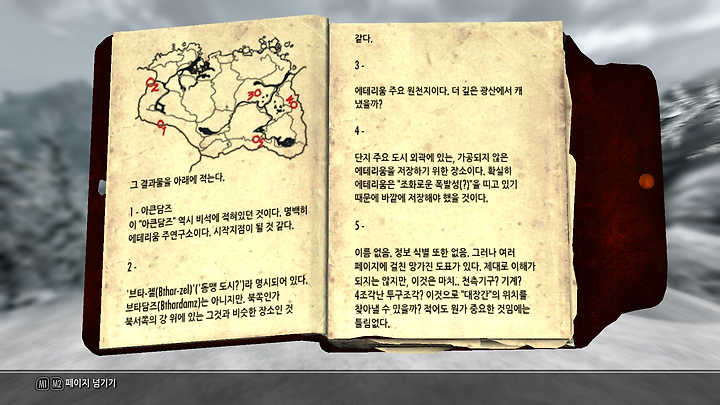 그 결과물을 아래에 적는다.
1 - 아큰담즈
이 "아큰담즈" 역시 비석에 적혀있던 것이다. 명백히
에테리움 주연구소이다. 시작지점이 될 것 같다.
2 -
'브타-젤(Bthar-zel)'('동맹 도시?')라 명시되어 있다.
브타담즈(Bthardamz)는 아니지만, 북쪽인가
북서쪽의 강 위에 있는 그것과 비슷한 장소인 것
같다.
3 -
에테리움 주요 원천지이다. 더 깊은 광산에서 캐
냈을까?
4 -
단지 주요 도시 외곽에 있는, 가공되지 않은
에테리움을 저장하기 위한 장소이다. 확실히
에테리움은 "조화로운 폭발성(?)"을 띠고 있기
때문에 바깥에 저장해야 했을 것이다.
5 -
이름 없음. 정보 식별 또한 없음. 그러나 여러
페이지에 걸친 망가진 도표가 있다. 제대로 이해가
되지는 않지만, 이것은 마치.. 천측기구? 기계?
4조각난 투구조각? 이것으로 "대장간"의 위치를
찾아낼 수 있을까? 적어도 뭔가 중요한 것임에는
틀림없다.
M1 M2 페이지 넘기기